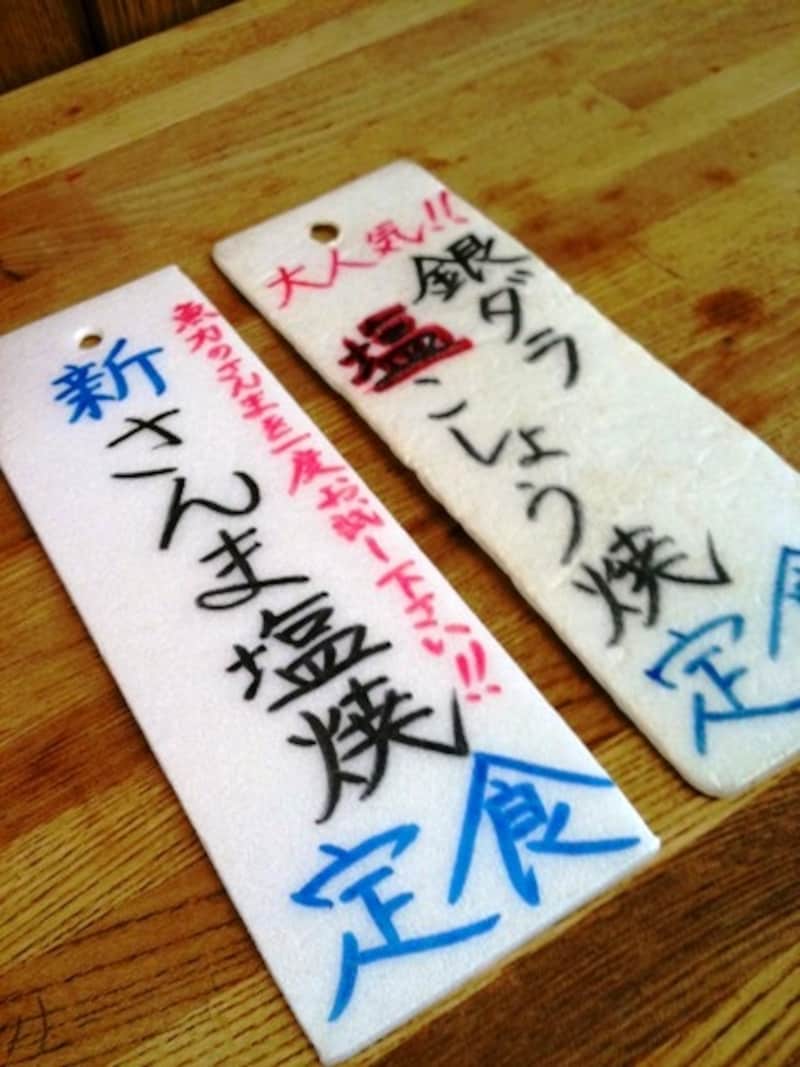 新さんま塩焼定食
魚力のさんまを一度お試し下さい!!
大人気!!
銀ダラ塩こしょう焼定食